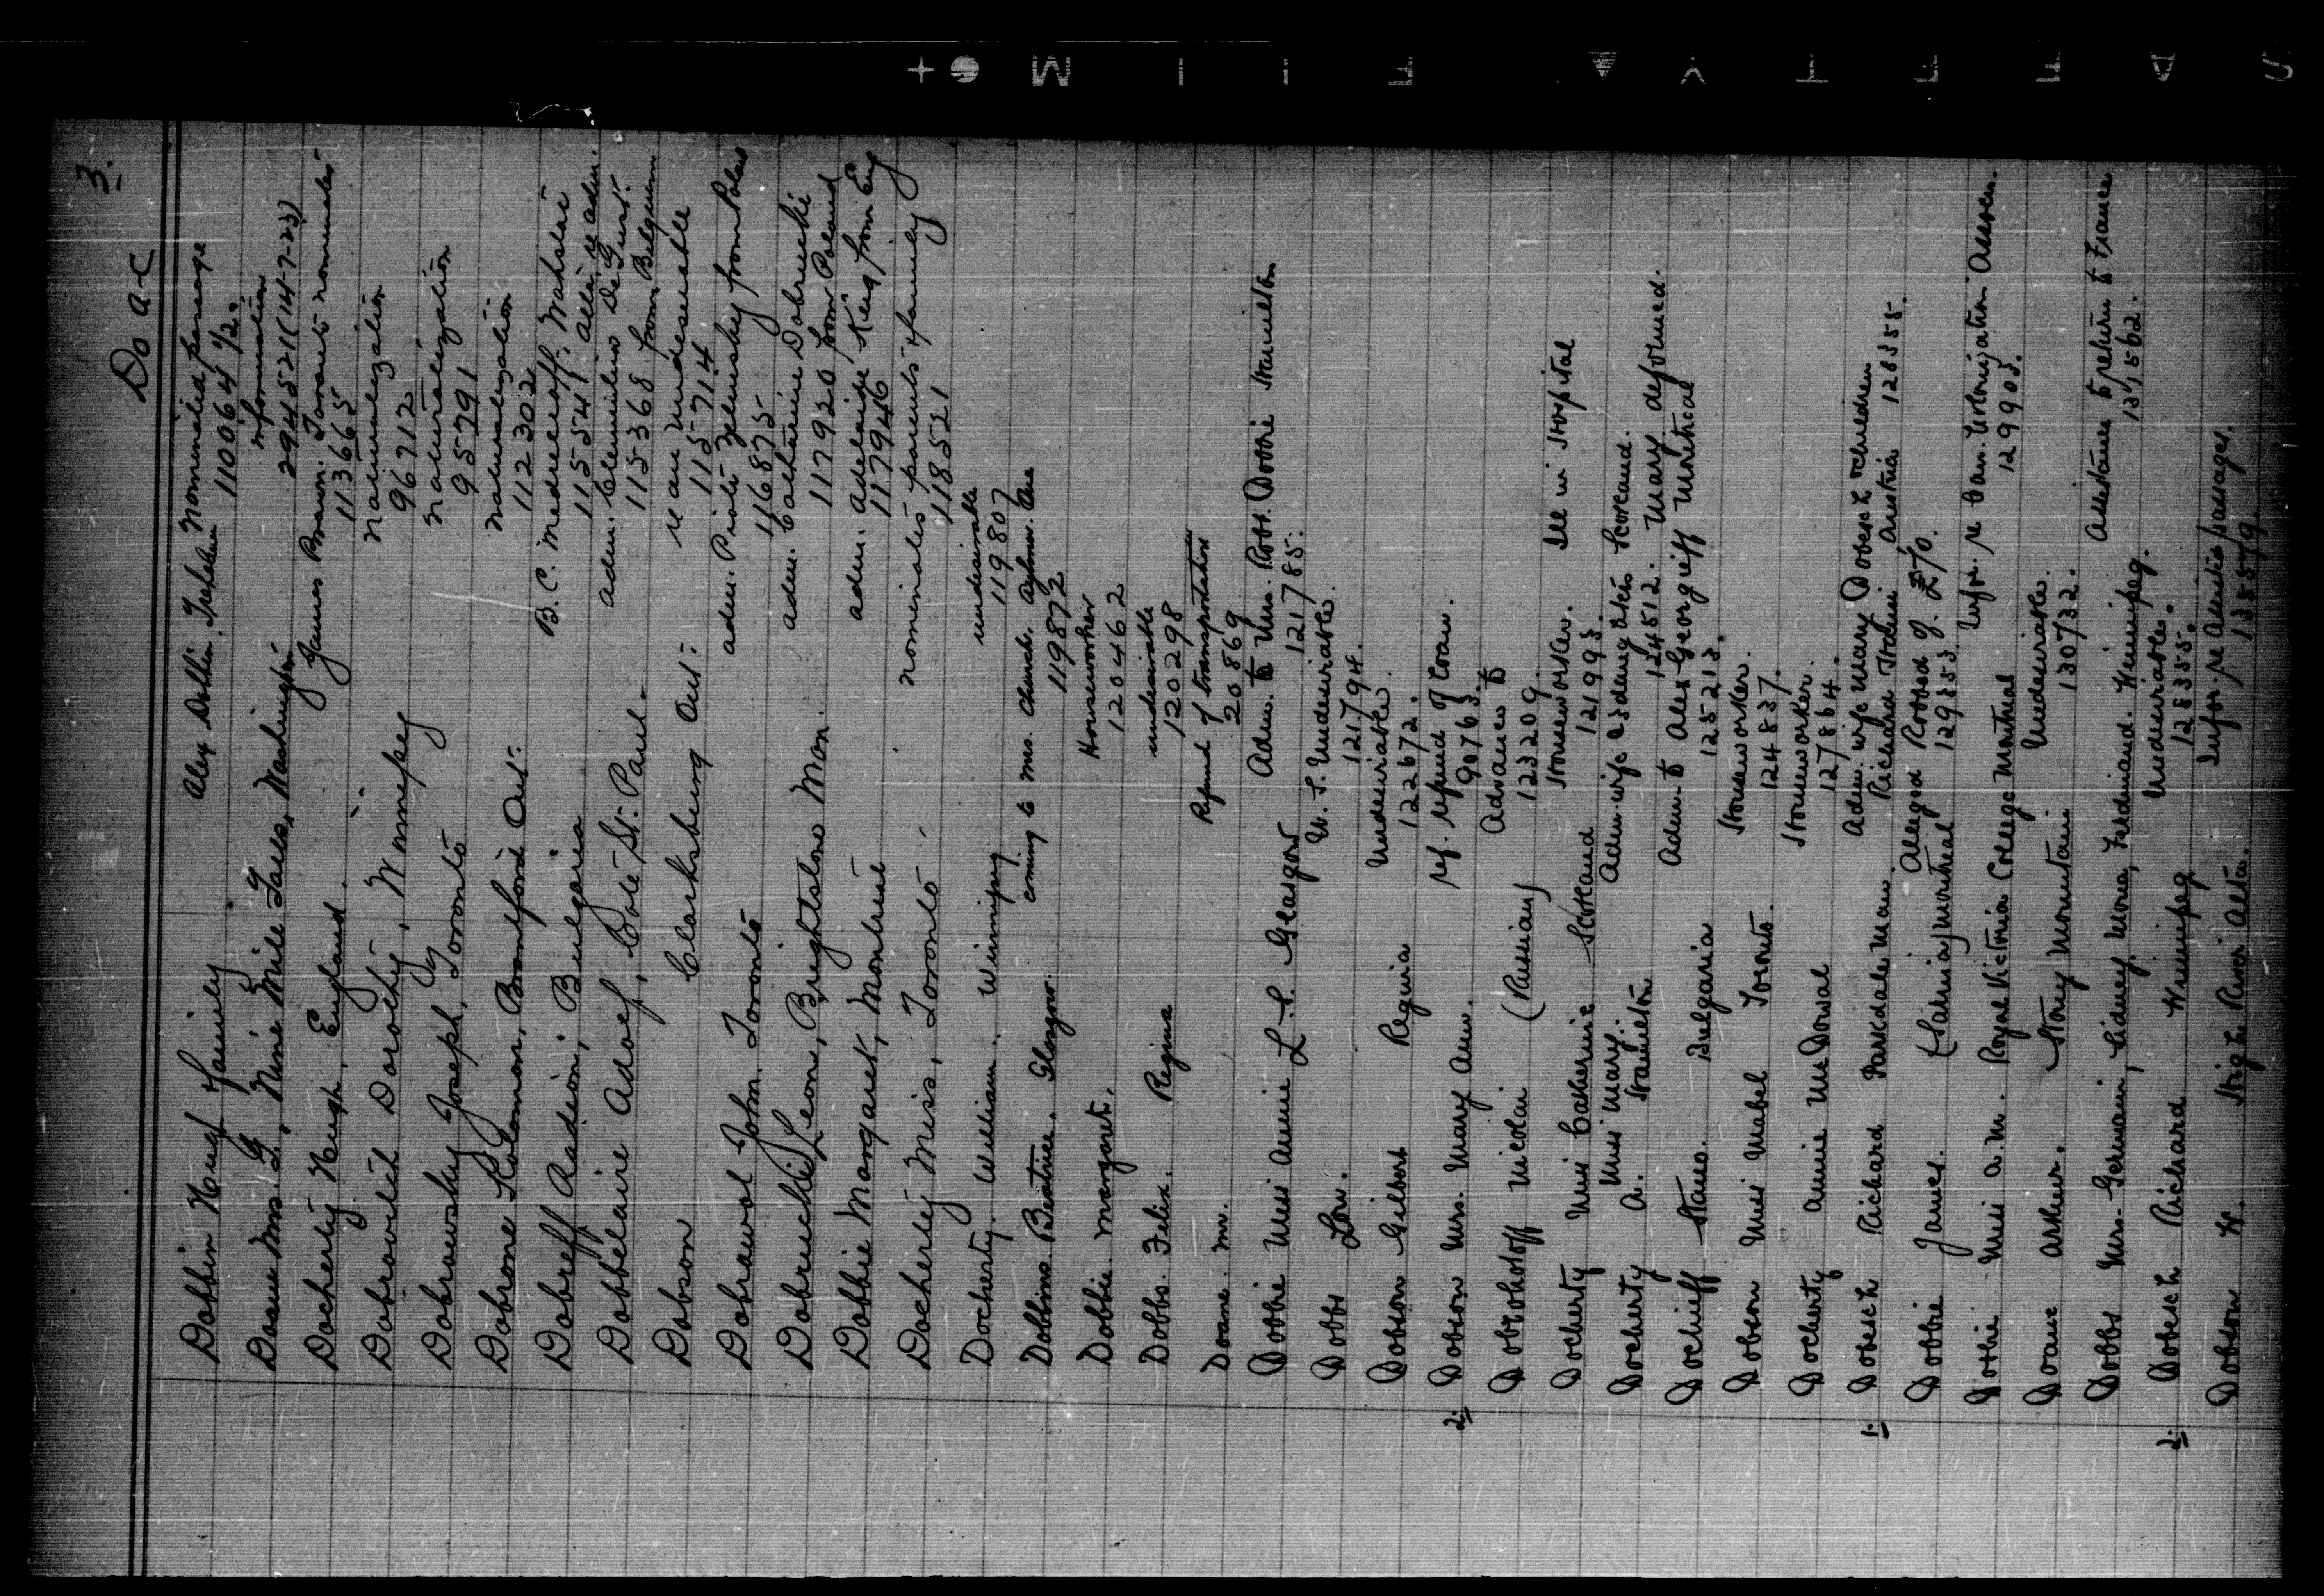 3.
Do a-c
Dobbin Hugh Family Alex Dobbin. Nominated passage
110064 1/2.
Doane Mrs. G, Nine Mile Falls, Washington information
294521 (14-7-23)
Docherty Hugh, England. James Bran. Toronto nominated
113665
Dobrowich Dorothy, Winnipeg naturalization
96712
Dobrowsky Joseph, Toronto naturalization
95791
Dobrone Solomon, Brantford Ont. naturalization
112302
Dobreff Radion, Bulgaria B.C. Medneroff,
115541
Dobbelaire Adolf, Cote St. Paul. adm.
115368 from Belgium
Dobson Clarksburg Ont. re an undesirable
115714
Dobrowol John, Toronto adm. from Poland
116875
Dobrucki Leon, Brightstone Man. adm. Catherine Dobrucki
117920 from Poland
Dobbie Margaret, Montreal adm. Adelaide King from Eng
117946
Docherty Miss, Toronto. nominates parents & family
118521
Docherty. William. Winnipeg undesirable
119807
Dobbins. Beatrice. Glasgow. coming to Mrs. Church. Aylmer. Que
119872
Dobbie. Margaret. Houseworker
120462
Dobbs. Felix. Regina undesirable
120298
Doane. M. Refund of transportation
20869
Dobbie Miss Annie L.S. Glasgow Adm. to Mrs. Robt. Dobbie Hamilton
121785.
Dobbs Low. U.S. Undesirable.
121794.
Dobson Gilbert Regina Undesirable.
122672.
2. Dobson Mrs. Mary Ann. ref. refund of loan.
90763.
Dobrohotoff Nicolai (Russian) Advance to
123209.
Docherty Miss Catherine Scotland Houseworker. Ill in Hospital
Miss Mary. 121993.
Docherty A. Hamilton Adm. wife & 3 daughters Scotland.
124512. Mary deformed.
Docheff Stano. Bulgaria Adm. to Alex Georgieff Montreal
125213.
Dobson Miss Mabel Toronto. Houseworker.
124837.
Docherty Annie McDowal Houseworker.
127864.
1. Dobesch Richard Parkdale Man. Adm. wife Mary Dobesch & children
Richard Austria 128555.
Dobbie James. (Sarnia) Montreal Alleged Robbed of £70.
129353.
Dobbie Miss A.M. Royal Victoria College Montreal Infor. re Can. Colonization Assocn.
129905.
Doane Arthur. Stony Mountain Undesirable.
130732.
Dobbs Mrs. Germain, Sidney, Mona, Ferdinand. Winnipeg. Assistance to return to France
131562.
2. Dobesch Richard Winnipeg Undesirable.
128355.
Dobson W. High River Alta. Infor. re Assisted passages.
133579.
SAFETY FILM